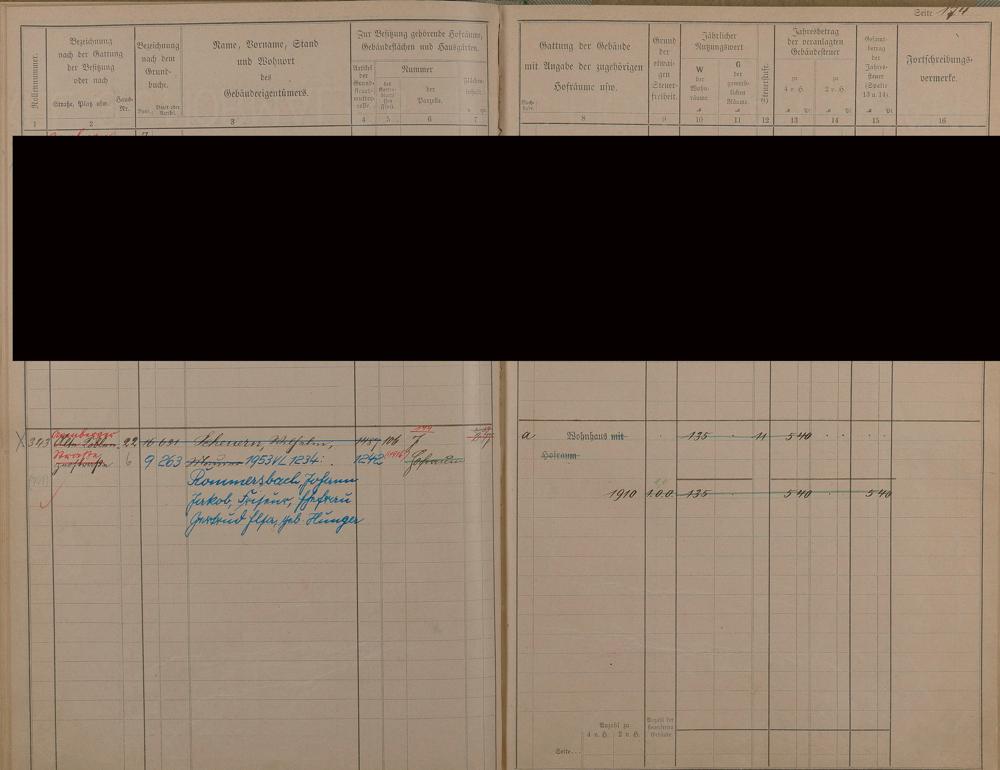 Seite 174
Rollennummer.
Bezeichnung
nach der Gattung
der Besitzung
oder nach
Straße, Platz usw. Haus-Nr.
Bezeichnung
nach dem
Grund-
buche.
Band, Blatt oder Artikel.
Name, Vorname, Stand
und Wohnort
des
Gebäudeeigentümers.
Zur Besitzung gehörende Hofräume,
Gebäudeflächen und Hausgärten.
Artikel
der
Grund-
steuer-
mutter-
rolle.
Nummer
des
Karten-
blatts
der
Parzelle.
Flächen-
inhalt.
Gattung der Gebäude
mit Angabe der zugehörigen
Hofräume usw.
Buch-
stabe.
Grund
der
etwai-
gen
Steuer-
freiheit.
Jährlicher
Nutzungswert
W
der
Wohn-
räume.
G
der
gewerb-
lichen
Räume.
Steuerstufe.
Jahresbetrag
der veranlagten
Gebäudesteuer
zu
4 v. H.
zu
2 v. H.
Gesamt-
betrag
der
Jahres-
steuer
(Spalte
13 u. 14).
Fortschreibungs-
vermerke.
1 2 3 4 5 6 7
8 9 10 11 12 13 14 15 16
343 22 16 691 Wilhelm, 106
Straße 6 9 263 1953 VL 1234. 1242
Rommersbach, Johann
Jakob, Friseur, Ehefrau
Gertrud Elsa, geb. Hunger
a Wohnhaus mit 135 11 5 40
Hofraum
1910 100 135 5 40 5 40
Anzahl zu
4 v. H. 2 v. H.
Anzahl der
steuerfreien
Gebäude
Seite...